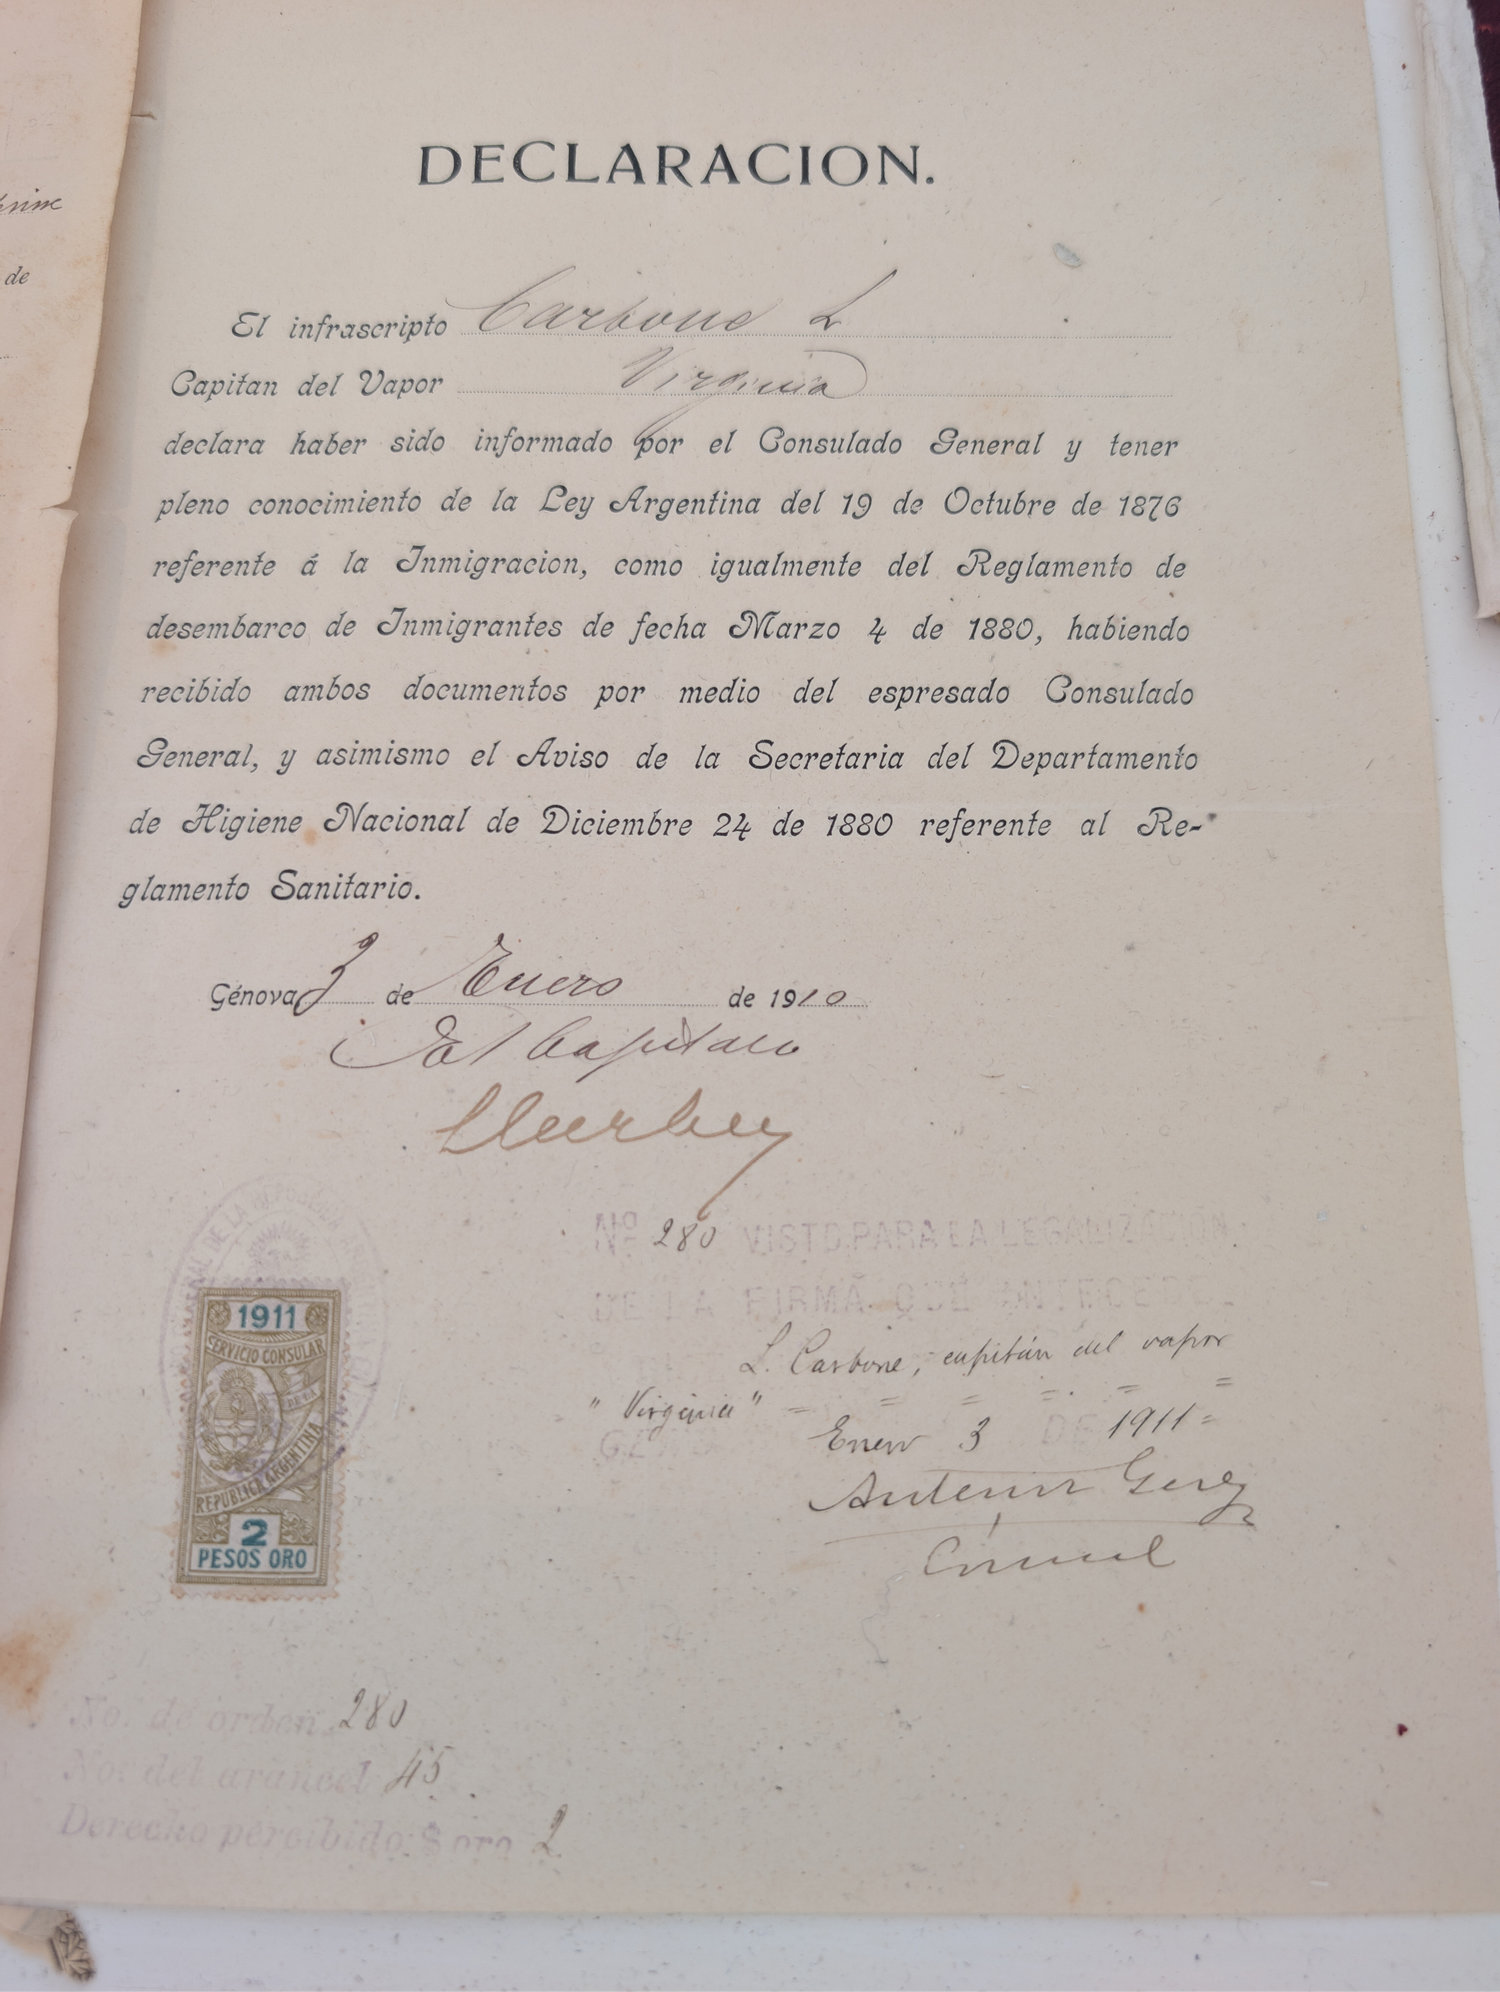 de
DECLARACION.
El infrascripto Carbone L
Capitan del Vapor Virginia
declara haber sido informado por el Consulado General y tener
pleno conocimiento de la Ley Argentina del 19 de Octubre de 1876
referente á la Inmigracion, como igualmente del Reglamento de
desembarco de Inmigrantes de fecha Marzo 4 de 1880, habiendo
recibido ambos documentos por medio del espresado Consulado
General, y asimismo el Aviso de la Secretaria del Departamento
de Higiene Nacional de Diciembre 24 de 1880 referente al Re-
glamento Sanitario.
Génova 3 de Enero de 1910
Capitano
Nº 280 VISTO PARA LA LEGALIZACION
DE LA FIRMA QUE ANTECEDE
L. Carbone, capitán del vapor
"Virginia" = = = = = =
Enero 3 DE 1911 =
Cónsul
1911
SERVICIO CONSULAR
DE LA
REPUBLICA ARGENTINA
2
PESOS ORO
No. de orden 280
No. del arancel 45
Derecho percibido $ oro 2